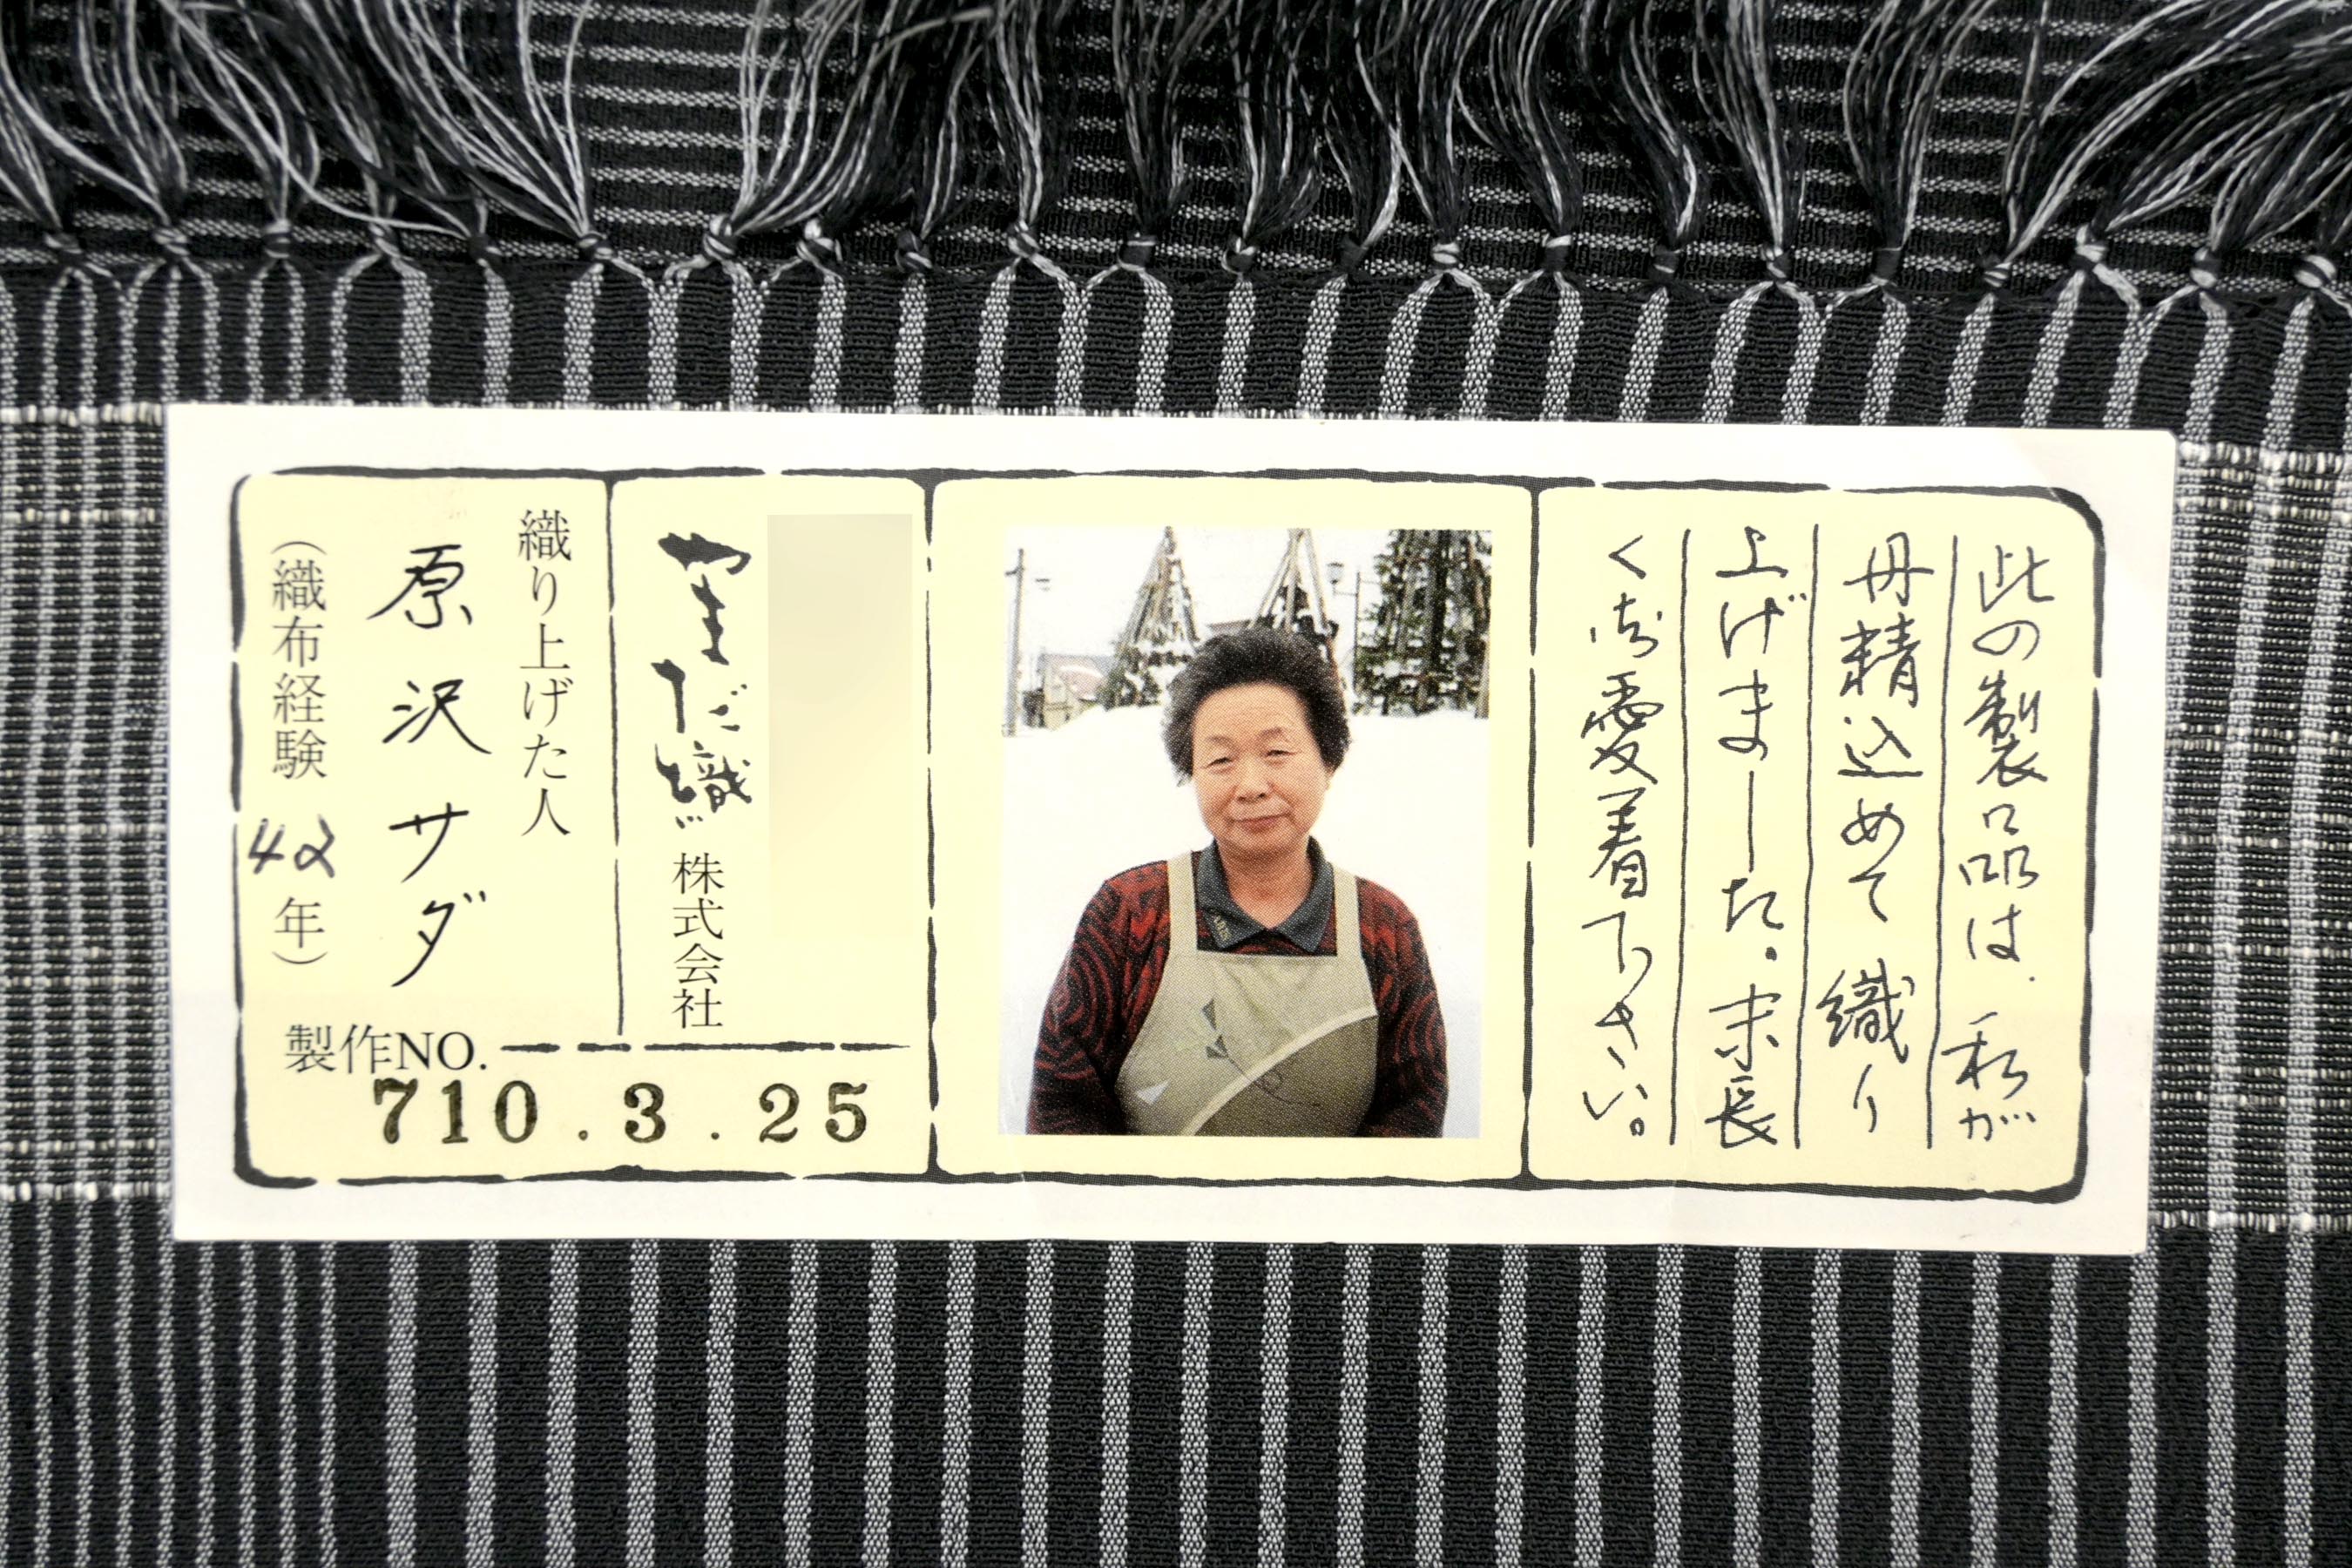 此の製品は、私が
丹精込めて織り
上げました。末長
く御愛着下さい。
やまだ織株式会社
織り上げた人
原沢サダ
（織布経験 42年）
製作NO.
710.3.25